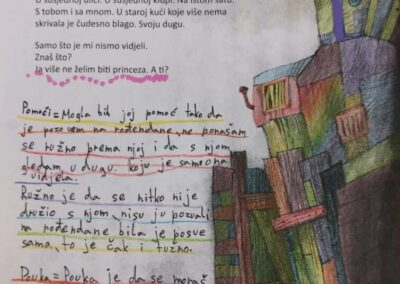 U susjednoj ulici. U susjednoj klupi. Na istom satu.
S tobom i sa mnom. U staroj kući koje više nema
skrivala je čudesno blago. Svoju dugu.
Samo što je mi nismo vidjeli.
Znaš što?
Ja više ne želim biti princeza. A ti?
Pomoći = Mogla bih joj pomoć tako da
je pozovem na rođendane, ne ponašam
se ružno prema njoj i da s njom
gledam u dugu koju je samo ona
vidjela.
Ružno je da se nitko nije
družio s njom, nisu ju pozvali
na rođendane bila je posve
sama, to je čak i tužno.
Pouka = Pouka je da se moraš